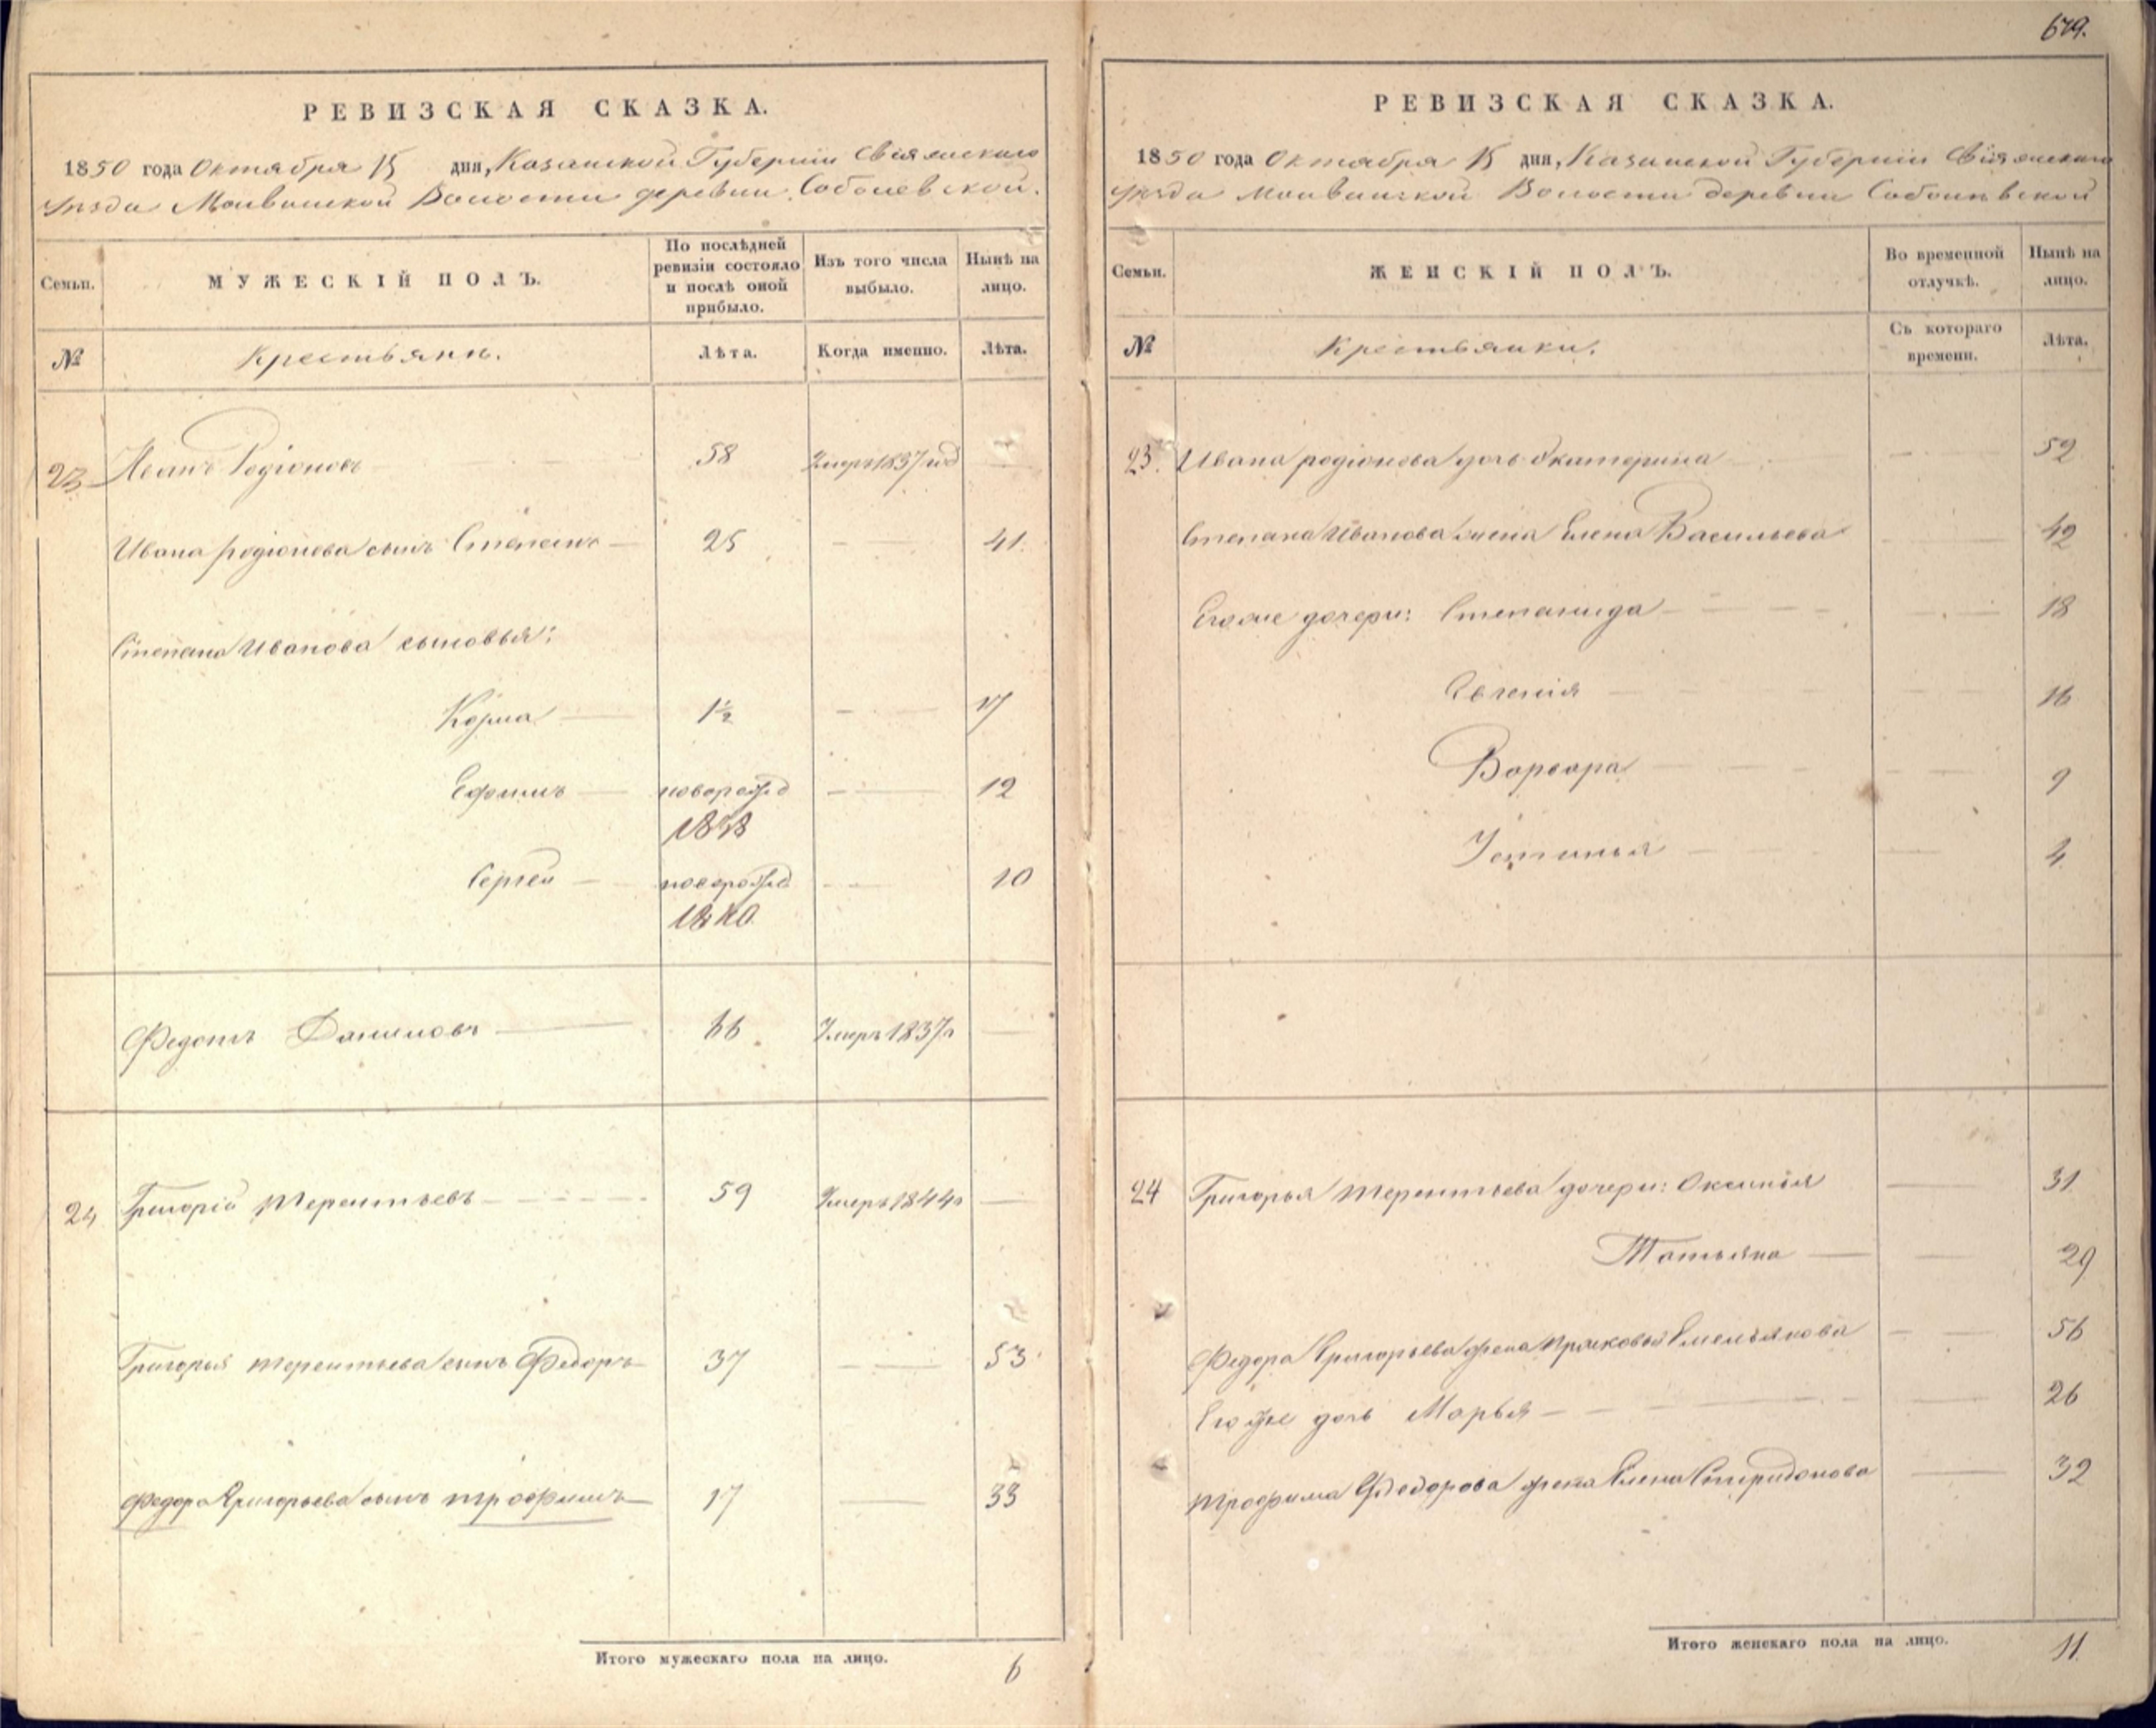 679.
РЕВИЗСКАЯ СКАЗКА.
1850 года Октября 15 дня, Казанской Губернии Свіяжскаго
Уѣзда Волости деревни Соболевской.
Семьи.
МУЖЕСКІЙ ПОЛЪ.
По послѣдней ревизіи состояло и послѣ оной прибыло.
Изъ того числа выбыло.
Нынѣ на лицо.
№
Крестьяне.
Лѣта.
Когда именно.
Лѣта.
23 Иванъ Родіоновъ 58 Умеръ 1837 —
Ивана родіонова сынъ Степанъ — 25 — 41.
Степана Иванова сыновья:
Козма — 1½ — 17
Ефимъ — новорожд — 12
1838
Сергей — новорожд — 10
1840.
Федотъ Даниловъ — 66 Умеръ 1837 г —
24 Григорій Терентьевъ — 59 Умеръ 1844 г —
Григорья терентьева сынъ Федоръ — 37 — 53
Федора Григорьева сынъ трофимъ — 17 — 33
Итого мужескаго пола на лицо. 6
РЕВИЗСКАЯ СКАЗКА.
1850 года Октября 15 дня, Казанской Губерніи Свіяжскаго
Уѣзда Волости деревни Соболевской
Семьи.
ЖЕНСКІЙ ПОЛЪ.
Во временной отлучкѣ.
Нынѣ на лицо.
№
Крестьянки.
Съ котораго времени.
Лѣта.
23. Ивана родіонова дочь Екатерина — 52
Степана Иванова жена Елена Васильева — 42
Егоже дочери: Степанида — 18
Евгенія — 16
Варвара — 9
Устинья — 4
24 Григорья терентьева дочери: Оксинья — 31
Татьяна — 29
Федора Григорьева жена Прасковья Емельянова — 56
Егоже дочь Марья — 26
трофима Федорова жена Елена Спиридонова — 32
Итого женскаго пола на лицо. 11